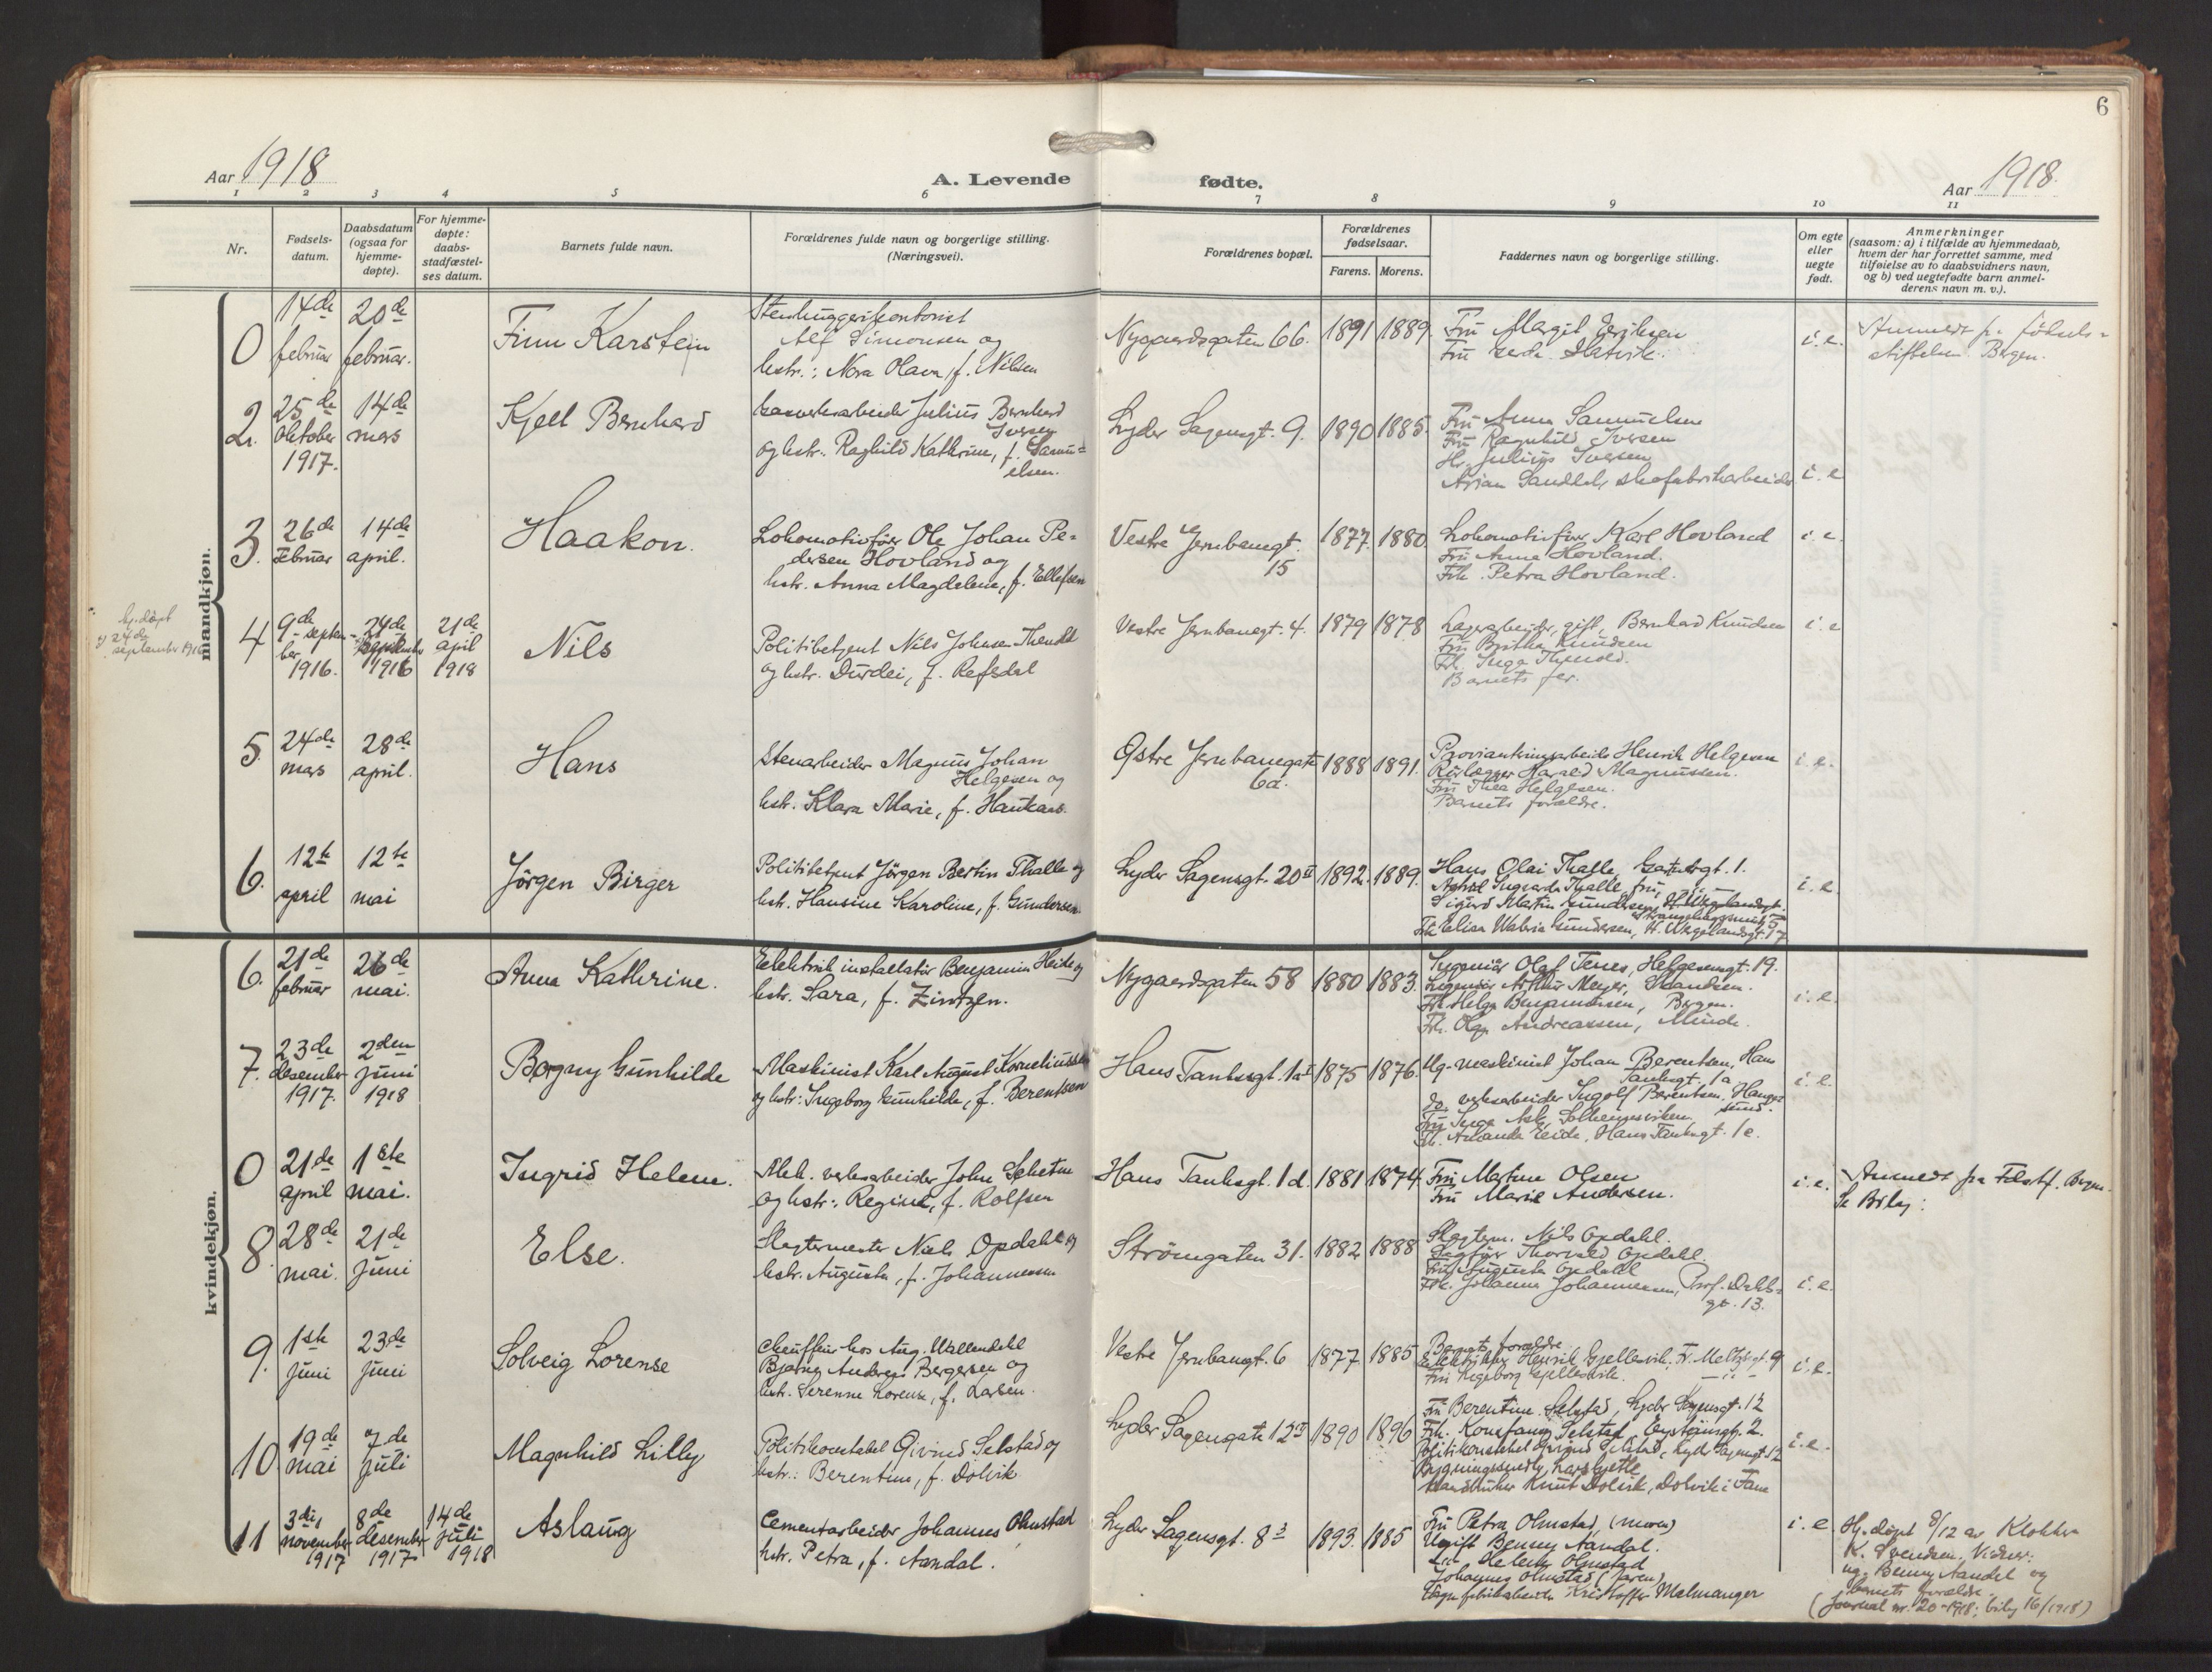 6
Aar 1918
A. Levende fødte.
Aar 1918.
1 2 3 4 5 6 7 8 9 10 11
Nr.
Fødsels-
datum.
Daabsdatum
(ogsaa for
hjemme-
døpte).
For hjemme-
døpte:
daabs-
stadfæstel-
ses datum.
Barnets fulde navn.
Forældrenes fulde navn og borgerlige stilling.
(Næringsvei).
Forældrenes bopæl.
Forældrenes
fødselsaar.
Farens. Morens.
Faddernes navn og borgerlige stilling.
Om egte
eller
uegte
født.
Anmerkninger
(saasom: a) i tilfælde av hjemmedaab,
hvem der har forrettet samme, med
tilføielse av to daabsvidners navn,
og b) ved uegtefødte barn anmel-
derens navn m. v.).
mandkjøn.
0
14de
februar
20de
februar.
Finn Karstein
Stenhuggerikontorist
Alf Simonsen og
hstr.: Nora Olava, f. Nilsen
Nygaardsgaten 66.
1891 1889.
Fru Margit
Fru
i.e.
Bergen.
2.
25de
Oktober
1917.
14de
mars
Kjell Bernhard
Gasverksarbeider Julius Bernhard
Iversen
og hstr. Raghild Kathrine, f. Samu-
elsen.
Lyder Sagensgt. 9.
1890 1885.
Fru Anna Samuelsen
Fru Ragnhild Iversen
Hr. Julius Iversen
skofabrikarbeider
i.e
3.
26de
Februar
14de
april.
Haakon.
Lokomotivfører Ole Johan Pe-
dersen Hovland og
hstr. Anna Magdelene, f. Ellefsen
Vestre Jernbanegt.
15
1877. 1880.
Lokomotivfører Karl Hovland
Fru Anna Hovland.
Frk. Petra Hovland.
i.e.
hj.døpt
24de
september 1916
4
9de
septem-
ber
1916.
24de
september
1916
21de
april
1918
Nils
Politibetjent Nils Johnsen
og hstr. Durdei, f. Refsdal
Vestre Jernbanegt. 4.
1879 1878
Lagerarbeider, gift, Bernhard Knudsen
Fru Brita Knudsen
Frk. Inga
Barnets far.
i.e
5.
24de
mars
28de
april.
Hans
Stenarbeider Magnus Johan
Helgesen og
hstr. Klara Marie, f. Haukaas.
Østre Jernbanegate
6a.
1888 1891.
Henrik Helgesen
Rørlægger Harald Magnussen.
Fru Thea Helgesen.
Barnets forældre.
i.e.
6.
12te
april
12te
mai
Jørgen Birger
Politibetjent Jørgen Bertin Thalle og
hstr. Hansine Karoline, f. Gundersen.
Lyder Sagensgt. 20 II
1892. 1889.
Hans Olai Thalle,
Astrid Ingvarda Thalle, fru,
Sigurd Martin Gundersen,
Frk. Elisa Gundersen, H. Wergelandsgt. 17
i.e.
kvindekjøn.
6.
21de
februar
26de
mai.
Anna Kathrine.
Elektrisk installatør Benjamin Heide og
hstr. Sara, f. Zintzen.
Nygaardsgaten 58
1880 1883.
Ingeniør Olaf Tenes, Helgesensgt. 19.
Ingeniør Arthur Meyer,
Frk. Helga Benjaminsen, Bergen.
Frk. Olga Andreassen, Minde.
i.e.
7.
23de
desember
1917.
2den
juni
1918
Borgny Gunhilde
Maskinist Karl August Korneliussen
og hstr: Ingeborg Gunhilde, f. Berentsen
Hans Tanksgt. 1a I
1875 1876.
Ug. maskinist Johan Berentsen, Hans
Tanksgt. 1a
do. verksarbeider Ingolf Berentsen, Hauge-
sund.
Fru Inga Ask, Solheimsviken
Frk. Amanda Eide, Hans Tanksgt. 1e.
i.e.
0
21de
april
1ste
mai.
Ingrid Helene.
Mek. verksarbeider John
og hstr: Regine, f. Rolfsen
Hans Tanksgt. 1d.
1881 1874.
Fru Martine Olsen
Fru Marie Andersen.
i.e.
Se Bilag:
8.
28de
mai.
21de
juni
Else.
Slagtermester Niels Opdahl og
hstr. Augusta, f. Johannessen
Strömgaten 31.
1882 1888
Slagterm. Nils Opdahl.
Thorvald Opdahl
Fru Augusta Opdahl
Frk. Johanna Johannessen, Prof. Dahls-
gt. 13.
i.e.
9.
1ste
juni
23de
juni
Solveig Lorense
Chauffeur hos Aug. Wallendahl
Bjarne Andreas Bergesen og
hstr. Serenne Lorense, f. Larsen.
Vestre Jernbanegt. 6
1877. 1885
Barnets forældre
Elektriker Henrik Gjellesvik, Fr. Meltzersgt. 9
Fru Ingeborg Gjellesvik.
i.e.
10.
19de
mai
7de
juli
Magnhild Lilly
Politikonstabel Eivind Selstad og
hstr.: Berentine, f. Dolvik
Lyder Sagensgate 12 II
1890 1896
Fru Berentine Selstad, Lyder Sagensgt. 12
Frk. Konstanse Selstad, Øysteinsgt. 2.
Politikonstabel Eivind Selstad, Lyder Sagensgt 12
Bygningssnedk. Lars
Handelsmand Knut Dolvik, Dolvik i Fane
i.e.
11
3die
november
1917
8de
desember
1917
14de
juli
1918
Aslaug
Cementarbeider Johannes Olmstad
hstr. Petra, f. Aandal.
Lyder Sagensgt. 8 3
1893. 1885
Fru Petra Olmstad, (moren)
Ugift Benny Aandal.
Helene Olmstad
Johannes Olmstad (faren)
Kristoffer Malmanger
i.e
Hj. døpt 8/12 av Klokker
K. Svendsen. Vidner:
ug. Benny Aandal og
barnets forældre.
(Journal nr. 20-1918; bilag 16/1918)